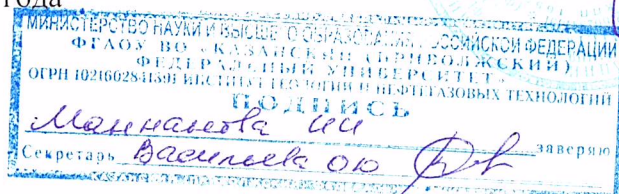 года
МИНИСТЕРСТВО НАУКИ И ВЫСШЕГО ОБРАЗОВАНИЯ РОССИЙСКОЙ ФЕДЕРАЦИИ
ФГАОУ ВО «КАЗАНСКИЙ (ПРИВОЛЖСКИЙ)
ФЕДЕРАЛЬНЫЙ УНИВЕРСИТЕТ»
ОГРН 1021602841391 ИНСТИТУТ ГЕОЛОГИИ И НЕФТЕГАЗОВЫХ ТЕХНОЛОГИЙ
ПОДПИСЬ
Маннанова ИИ
заверяю
Секретарь Васильева ОЮ